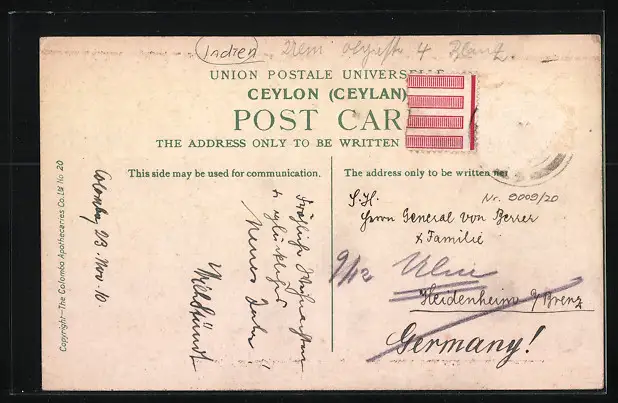 Indien Ulm 4
UNION POSTALE UNIVERSELLE
CEYLON (CEYLAN)
POST CAR
THE ADDRESS ONLY TO BE WRITTEN
This side may be used for communication.
The address only to be written
Copyright—The Colombo Apothecaries Co. Ltd No 20
Colombo 23. Nov. 10.
Fröhliche Weihnachten
& glückliches
Neues Jahr!
Nr. 9009/20
S.H.
Herrn General von Berrer
& Familie
9/12 Ulm
Heidenheim a/Brenz
Germany!